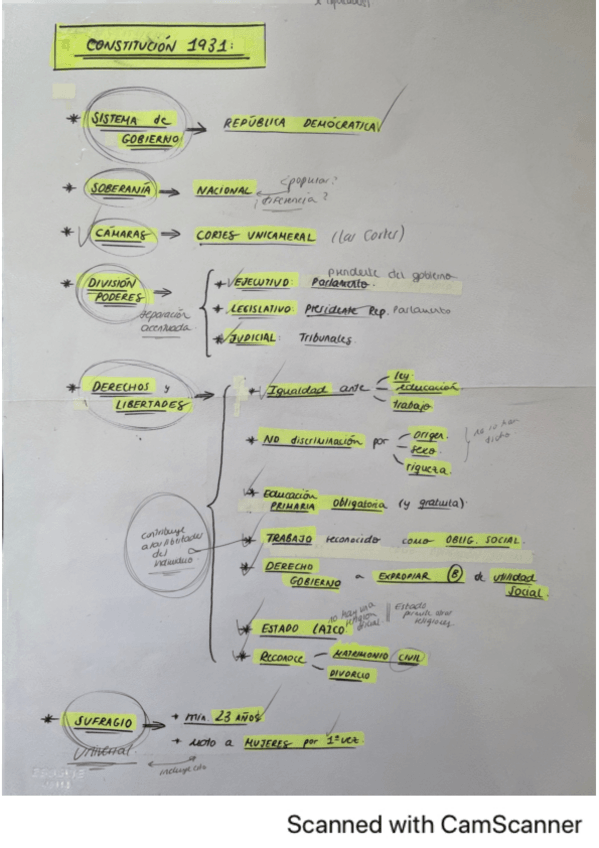 CONSTITUCIÓN 1931:
* SISTEMA de GOBIERNO → REPÚBLICA DEMOCRÁTICA
* SOBERANÍA → NACIONAL ¿popular?
¿diferencia?
* CÁMARAS → CORTES UNICAMERAL (Las Cortes)
* DIVISIÓN PODERES →
separación acentuada
presidente del gobierno
* EJECUTIVO: Parlamento.
* LEGISLATIVO: Presidente Rep. Parlamento
* JUDICIAL: Tribunales.
* DERECHOS y LIBERTADES →
* Igualdad ante
ley.
educación.
trabajo
* NO discriminación por
origen.
sexo.
riqueza.
no lo han dicho
* Educación
PRIMARIA obligatoria (y gratuita).
contribuye a las libertades del individuo
* TRABAJO reconocido como OBLIG. SOCIAL.
* DERECHO
GOBIERNO a EXPROPIAR (B) de utilidad social.
no hay una religión oficial
Estado permite otras religiones
* ESTADO LAICO:
* RECONOCE
MATRIMONIO CIVIL
DIVORCIO
* SUFRAGIO →
Universal
* min. 23 AÑOS
* voto a MUJERES por 1ª vez.
Scanned with CamScanner